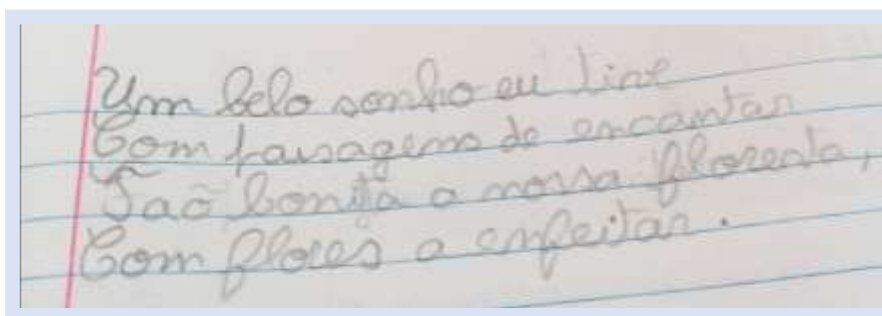 Um belo sonho eu tive
Com paisagens de encantar
Tão bonita a nossa floresta,
Com flores a enfeitar.